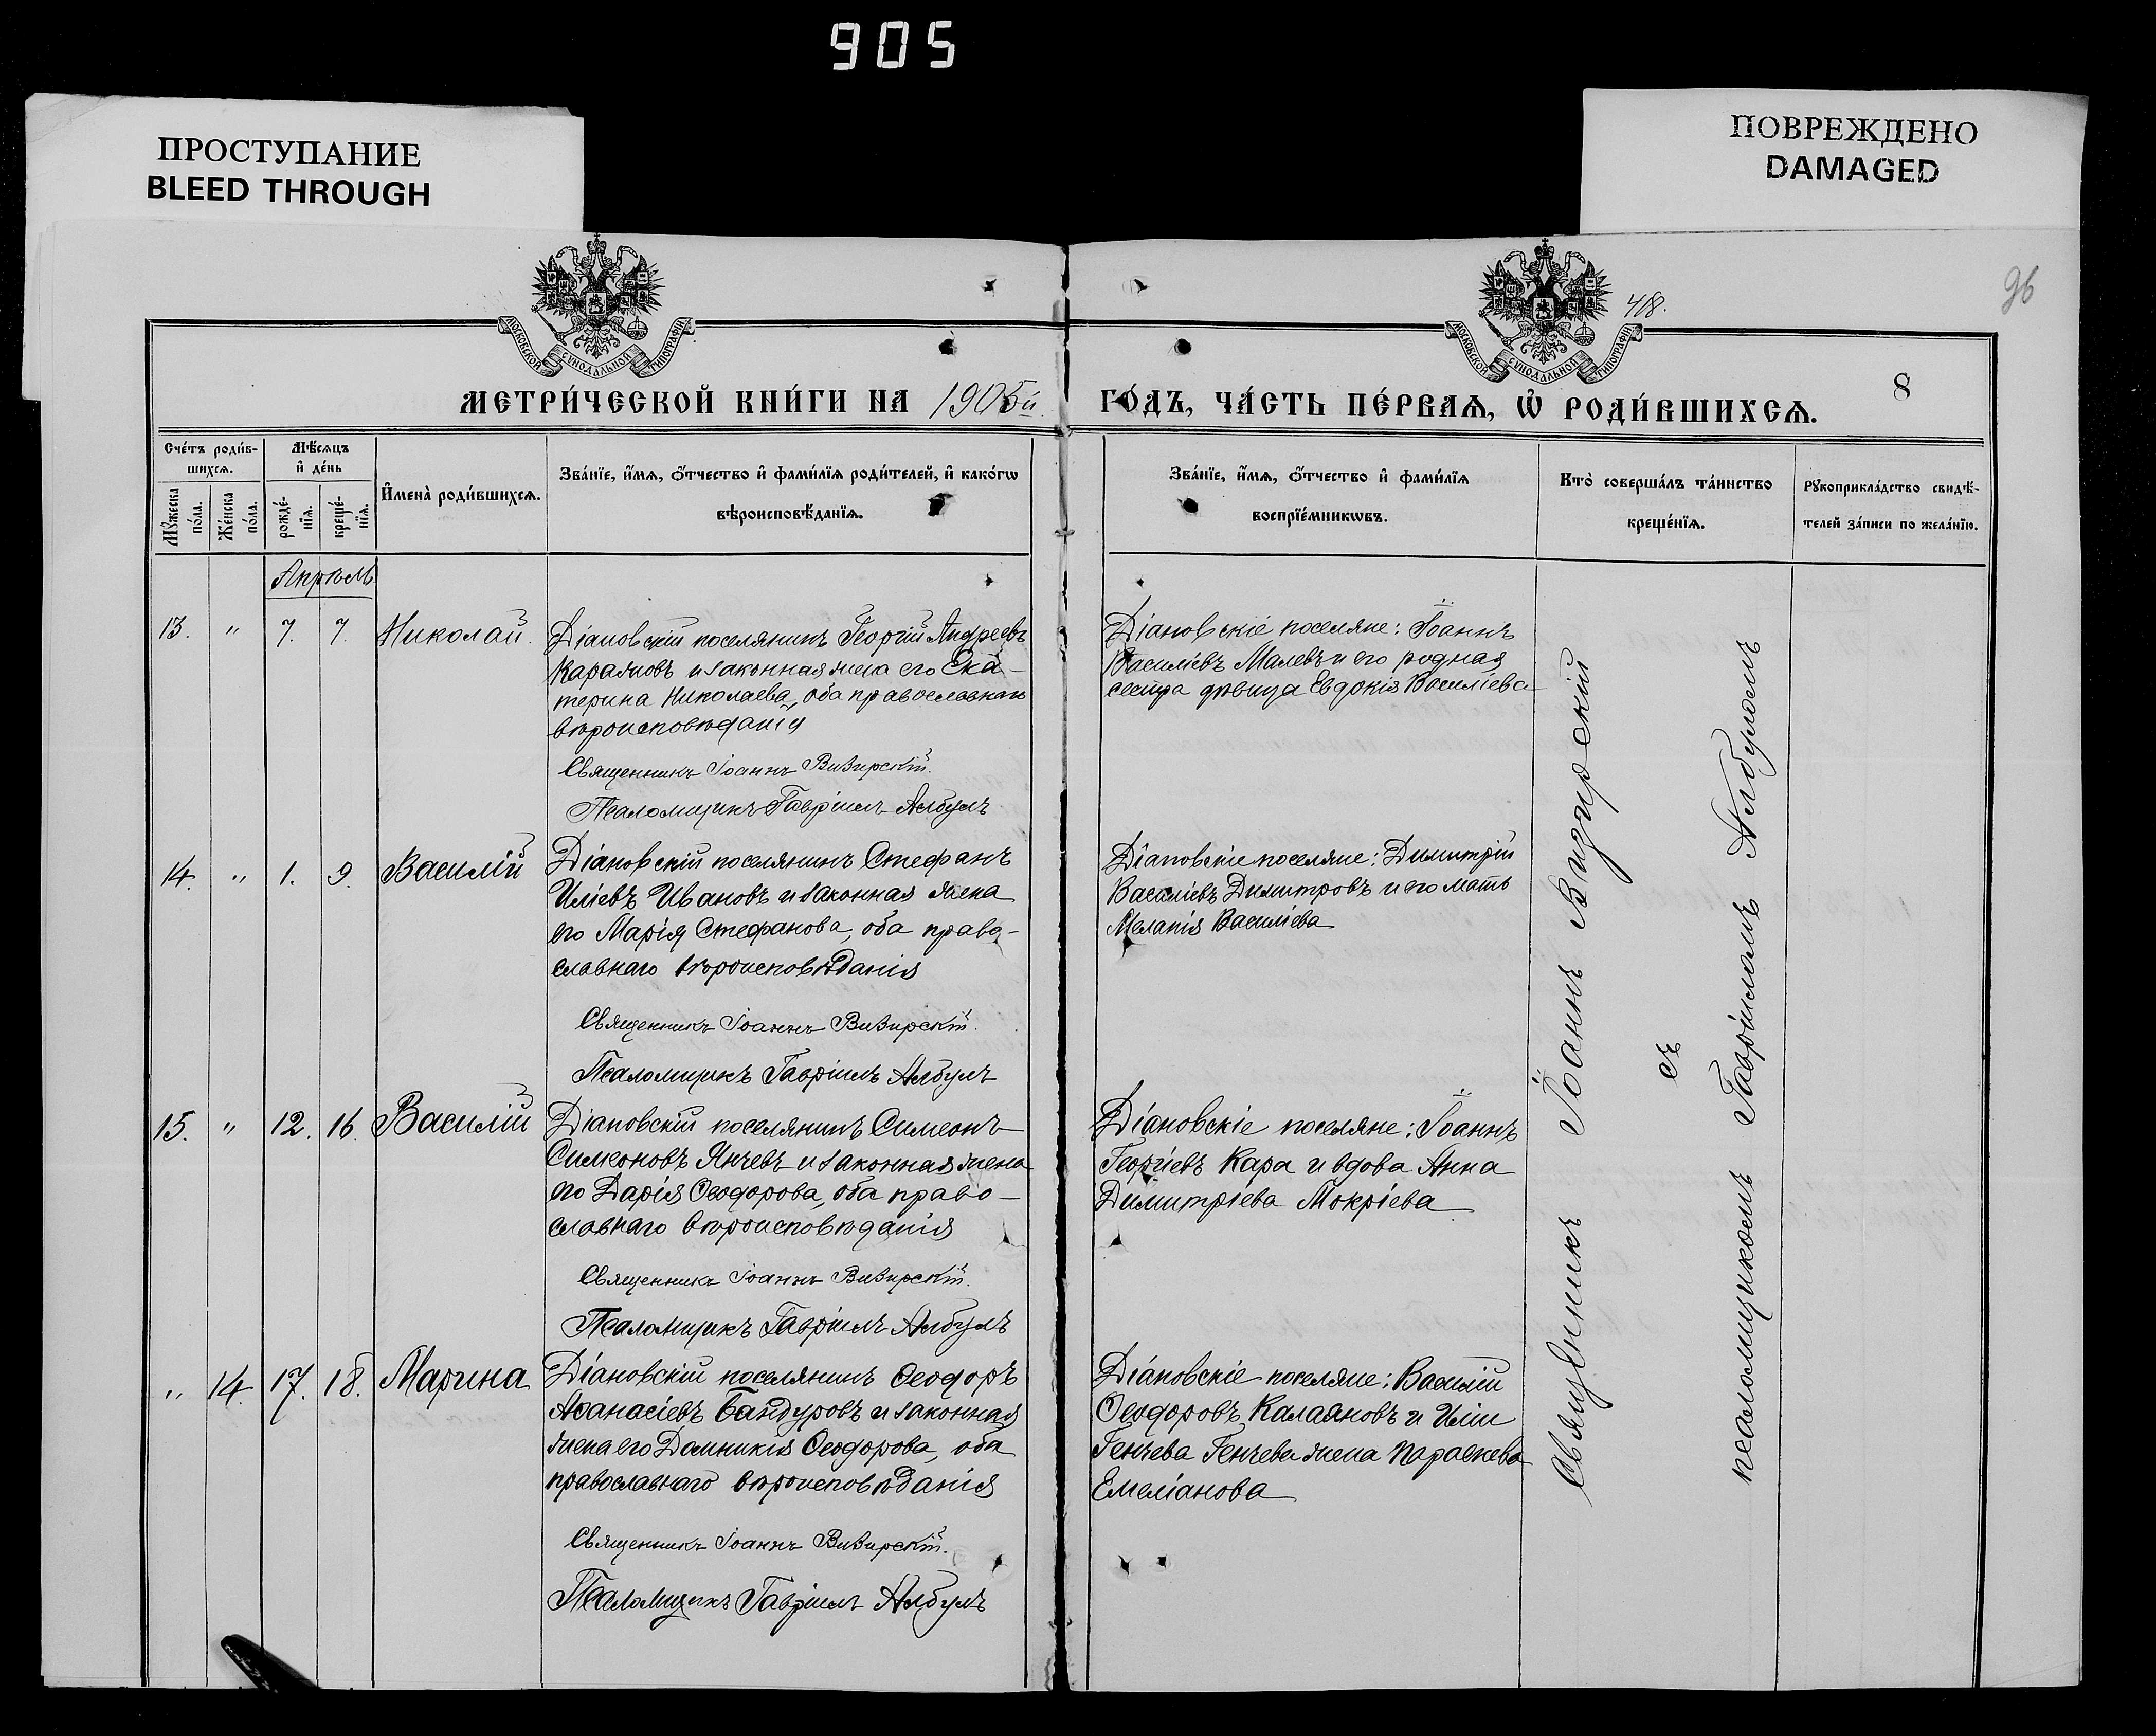 905
ПРОСТУПАНИЕ
BLEED THROUGH
ПОВРЕЖДЕНО
DAMAGED
96
418.
МОСКОВСКОЙ СѴНОДАЛЬНОЙ ТИПОГРАФІИ
МОСКОВСКОЙ СѴНОДАЛЬНОЙ ТИПОГРАФІИ
8
МЕТРИ́ЧЕСКОЙ КНИ́ГИ НА 1905й
ГО́ДЪ, ЧА́СТЬ ПЕ́РВАѦ, Ѡ҆ РОДИ́ВШИХСѦ.
Сче́тъ роди́в-
шихсѧ.
Мꙋ́жеска
по́ла.
Же́нска
по́ла.
Мѣ́сѧцъ
и҆ де́нь
рожде́-
нїѧ.
креще́-
нїѧ.
И҆мена̀ роди́вшихсѧ.
Зва́нїе, и҆́мѧ, ѻ҆́тчество и҆ фами́лїѧ роди́телей, и҆ како́гѡ
вѣроисповѣ́данїѧ.
Зва́нїе, и҆́мѧ, ѻ҆́тчество и҆ фами́лїѧ
воспрїе́мникѡвъ.
Кто̀ соверша́лъ та́инство
креще́нїѧ.
Рꙋкоприкла́дство свидѣ́-
телей за́писи по жела́нїю.
Апрѣль
13. " 7. 7. Николай.
Діановскій поселянинъ Георгій Андреевъ
Караяновъ и законная жена его Ека-
терина Николаева, оба православнаго
вѣроисповѣданія
Священникъ Іоаннъ Визирскій.
Псаломщикъ Гавріилъ Албулъ
Діановскіе поселяне: Іоаннъ
Василіевъ Малевъ и его родная
сестра дѣвица Евдокія Василіева
14. " 1. 9. Василій
Діановскій поселянинъ Стефанъ
Иліевъ Ивановъ и законная жена
его Марія Стефанова, оба право-
славнаго вѣроисповѣданія
Священникъ Іоаннъ Визирскій.
Псаломщикъ Гавріилъ Албулъ
Діановскіе поселяне: Димитрій
Василіевъ Димитровъ и его мать
Меланія Василіева
15. " 12. 16. Василій
Діановскій поселянинъ Симеонъ
Симеоновъ Янчевъ и законная жена
его Дарія Ѳеодорова, оба право-
славнаго вѣроисповѣданія
Священникъ Іоаннъ Визирскій.
Псаломщикъ Гавріилъ Албулъ
Діановскіе поселяне: Іоаннъ
Георгіевъ Кара и вдова Анна
Димитріева Мокріева
" 14. 17. 18. Марина
Діановскій поселянинъ Ѳеодоръ
Аѳанасіевъ Бандуровъ и законная
жена его Домникія Ѳеодорова, оба
православнаго вѣроисповѣданія
Священникъ Іоаннъ Визирскій.
Псаломщикъ Гавріилъ Албулъ
Діановскіе поселяне: Василій
Ѳеодоровъ Калаяновъ и Иліи
Генчева Генчева жена Параскева
Емеліанова
Священникъ Іоаннъ Визирскій
съ
псаломщикомъ Гавріиломъ Албуломъ